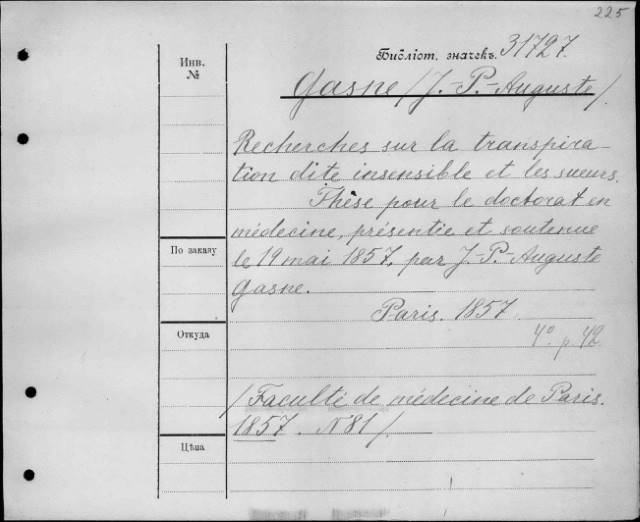 225
Библіот. значекъ 31727.
Инв.
№
Gasne /J.-P.-Auguste/.
Recherches sur la transpira-
tion dite insensible et les sueurs.
Thèse pour le doctorat en
médecine, présentie et soutenue
По заказу
le 19 mai 1857, par J.-P.-Auguste
Gasne.
Paris. 1857.
Откуда
4° p 42
/Faculti de médecine de Paris.
1857. N 81/.
Цѣна